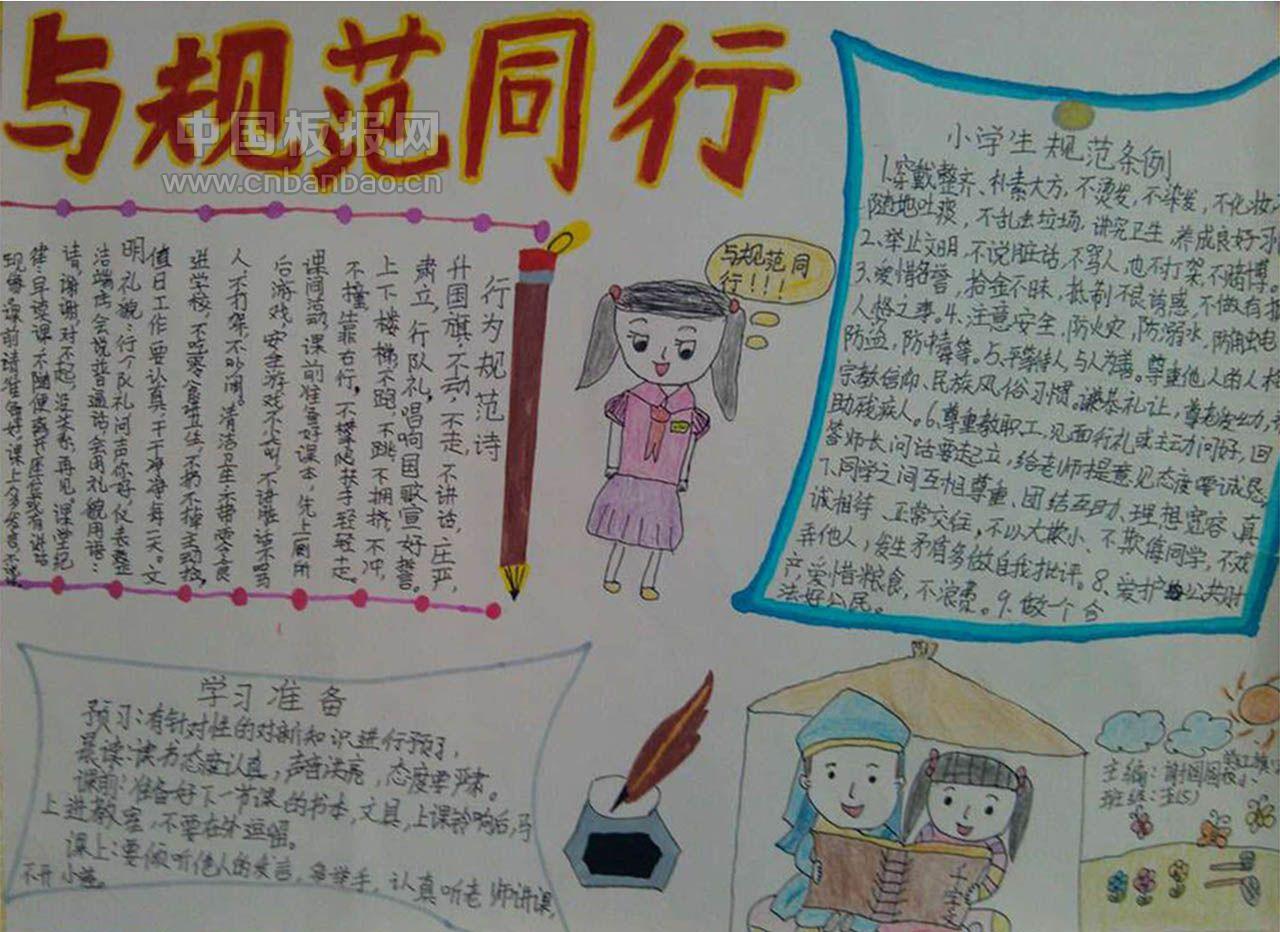 与规范同行
中国板报网
www.cnbanbao.cn
行为规范诗
升国旗,不动,不走,不讲话,庄严
肃立,行队礼,唱响国歌宣好誓。
上下楼梯不跑、不跳、不拥挤、不冲,
不撞,靠右行,不攀爬扶手轻轻走。
课间活动,课前准备好课本,先上厕所
后游戏,安全游戏不尖叫,不讲脏话不骂
人,不打架,不吵闹。清洁卫生,不带零食
进学校,不吃零食
值日工作要认真,干干净净每一天。文
明礼貌:行个队礼问声你好,仪表整
洁端庄,会说普通话,会用礼貌用语:
请,谢谢,对不起,没关系,再见。课堂纪
律:早读课,不随便离开座位
课前请准备好,课上
与规范同
行!!!
小学生规范条例
1.穿戴整齐、朴素大方,不烫发,不染发,不化妆,
随地吐痰,不乱丢垃圾,讲究卫生,养成良好习
2、举止文明,不说脏话,不骂人,也不打架,不赌博。
3、爱惜名誉,拾金不昧,抵制不良诱惑,不做有损
人格之事。4、注意安全,防火灾,防溺水,防触电
防盗,防中毒等。5、平等待人,与人为善。尊重他人的人格
宗教信仰、民族风俗习惯。谦恭礼让,尊老爱幼,
助残疾人。6、尊重教职工,见面行礼或主动问好,回
答师长问话要起立,给老师提意见态度要诚恳。
7、同学之间互相尊重、团结互助、理想宽容、真
诚相待、正常交往,不以大欺小、不欺侮同学,不戏
弄他人,发生矛盾多做自我批评。8、爱护公共财
产,爱惜粮食,不浪费。9、做个合
法好公民。
学习准备
预习:有针对性的对新知识进行预习,
晨读:读书态度认真,声音洪亮,态度要严肃。
课前:准备好下一节课的书本,文具,上课铃响后,马
上进教室,不要在外逗留。
课上:要倾听他人的发言,多举手,认真听老师讲课,
不开小差。
主编:谢圆圆
班级:五(5)